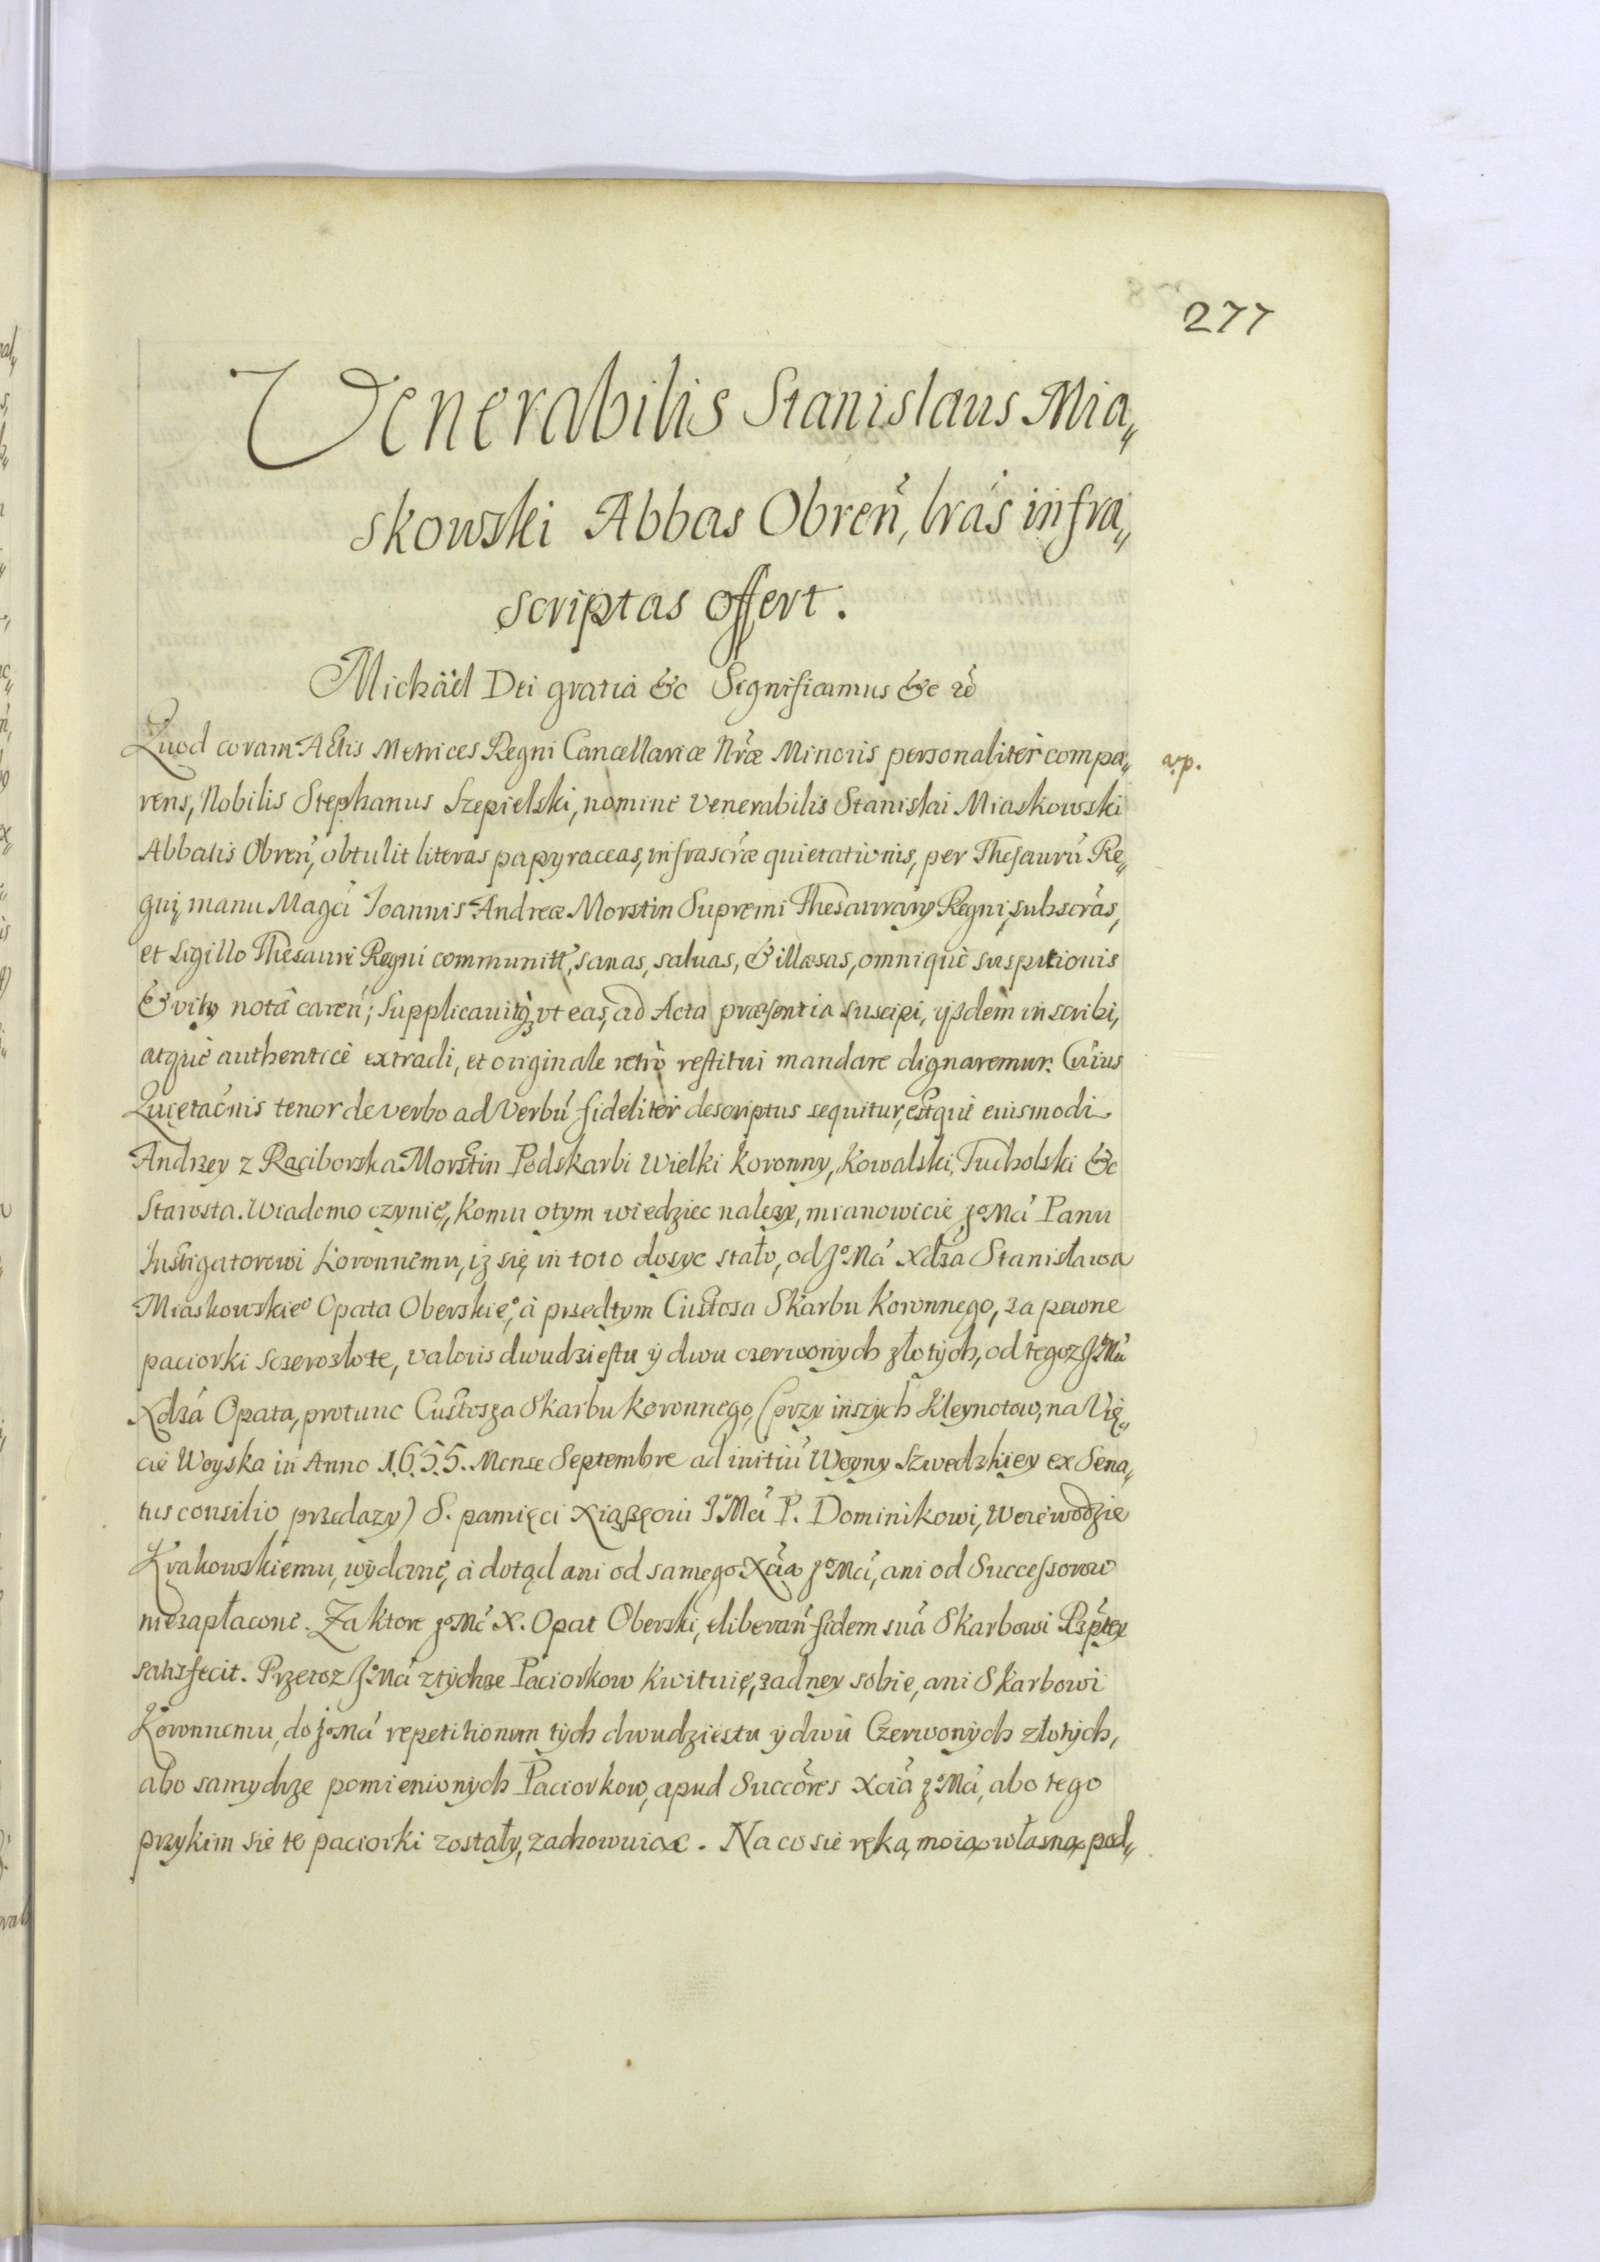 277
Venerabilis Stanislaus Mia„
skowski Abbas Obren̄, lrás infra„
scriptas offert.
Michäel Dei gratiá &c Significamus &c
Quod coram Actis Metrices Regni Cancellariæ Nr̄æ Minoris personaliter compa„
a.p.
rens, Nobilis Stephanus Szepielski, nomine Venerabilis Stanislai Miaskowski
Abbatis Obren̄, obtulit literas papyraceas, infrascr̄æ quietationis, per Thesaurū Re„
gni, manu Magci Ioannis Andreæ Morstin Supremi Thesaurary Regni, subscrās,
et sigillo Thesauri Regni communitt, sanas, saluas, & illæsas, omnique suspitionis
& vity notâ caren̄; Supplicauitq3 vt eas, ad Acta præsentia suscipi, ysdem inscribi,
atquè authenticè extradi, et originale retrò restitui mandare dignaremur. Cuius
Quietac̄nis tenor de verbo ad Verbū fideliter descriptus sequitur, estquè eiusmodi
Andrzey z Raciborska Morstin Podskarbi Wielki koronny, Kowalski, Tucholski &c
Starosta. Wiadomo czynię, komu otym wiedziec nalezy, mianowicie Jº Mći Panu
Instigatorowi koronnemu, iz się in toto dosyc stało, od Jº Mći Xdza Stanisława
Miaskowskieº Opata Oberskieº, á przedtym Custosa Skarbu koronnego, za pewne
paciorki sczerozłote, valoris dwudziestu y dwu czerwonych złotych, od tegoz Jº Mći
Xdzá Opata, protunc Custosza Skarbu koronnego, (przy inszych kleynotow, na Vię„
cie Woyska in Anno 1655. Mense Septembre ad initiū Woyny Szwedzkiey ex Sena„
tus consilio przedazy) S. pamięci Xiązęciu Jº Mći P. Dominikowi, Woiewodzie
Krakowskiemu, wydane, á dotąd ani od samego Xcia Jº Mći, ani od Successorow
niezapłacone. Za ktore Jº Mć X. Opat Oberski, eliberan̄ fidem suā Skarbowi Rzptey
satisfecit. Przetoz Jº Mći ztychze Paciorkow kwituię, zadney sobie, ani Skarbowi
Koronnemu, do Jº Mći repetitionem tych dwudziestu y dwu Czerwonych złotych,
abo samychze pomienionych Paciorkow, apud Succōres Xciá Jº Mći, abo tego
przykim sie te paciorki zostały, zachowuiąc. Na co sie ręką moią własną pod„